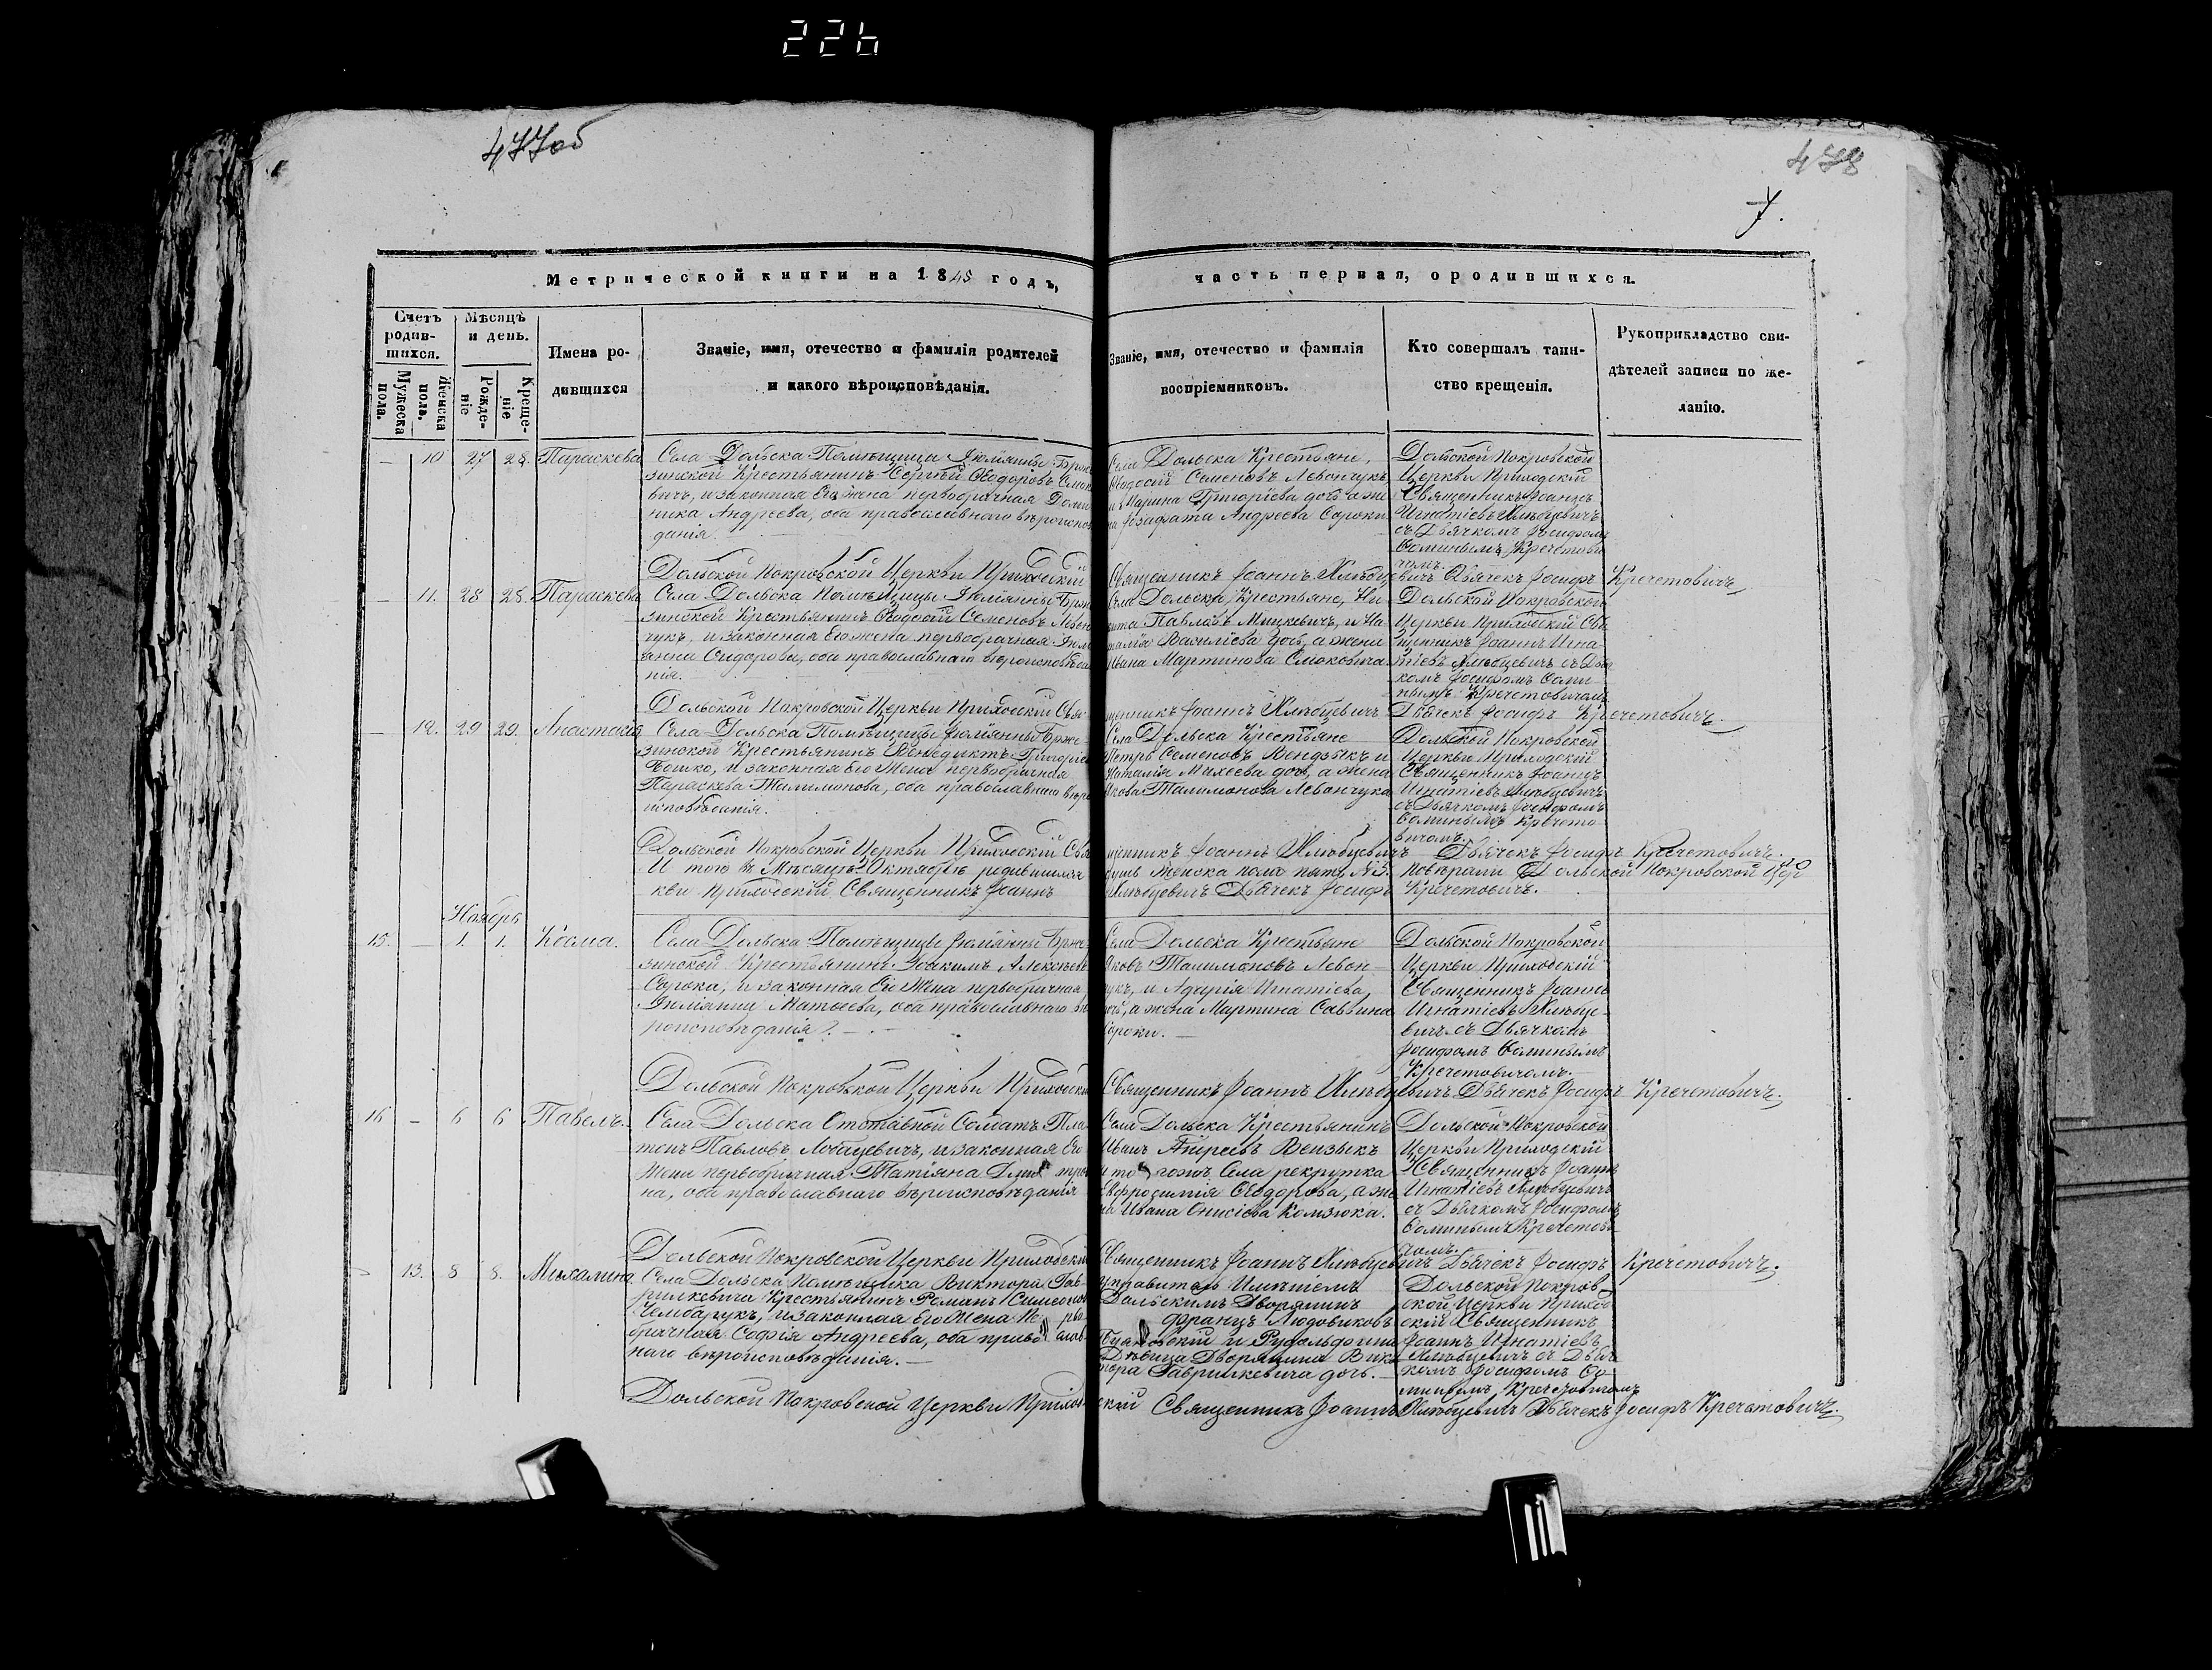 226
477об
478
7.
Метрической книги на 1845 годъ,
часть первая, ородившихся.
Счетъ родив-шихся.
Мужеска пола.
Женска пола.
Мѣсяцъ и день.
Рожде-ніе
Креще-ніе
Имена ро-
дившихся
Званіе, имя, отечество и фамилія родителей
и какого вѣроисповѣданія.
Званіе, имя, отечество и фамилія
воспріемниковъ.
Кто совершалъ таин-
ство крещенія.
Рукоприкладство сви-
дѣтелей записи по же-
ланію.
— 10 27 28. Параскева
Села Дольска Помѣщицы Юліянны Брже
зинской Крестьянинъ Сергѣй Ѳеодоровъ Смок
вичъ, и законная Его жена первобрачная Доми
ника Андреева, оба православнаго вѣроиспов
данія.
Села Дольска Крестьяне,
Ѳеодосій Семеновъ Левончукъ
и Марина Григоріева дочь а же
на Іозафата Андреева Сороки
Дольской Покровской
Церкви Приходскій
Священникъ Іоаннъ
Игнатіевъ Хлѣбцевичъ
съ Дьячкомъ Іосифомъ
Ѳоминымъ Кречетови
чомъ.
Дольской Покровской Церкви Приходскій Священникъ Іоаннъ Хлѣбцевичъ Дьячекъ Іосифъ Кречетовичъ
— 11. 28 28. Параскева
Села Дольска Помѣщицы Юліянны Брже
зинской Крестьянинъ Ѳеодосій Семеновъ Левон
чукъ, и законная Его жена первобрачная Юлі
янна Сидорова, оба православнаго вѣроисповѣда
нія.
Села Дольска, Крестьяне, Ни
кита Павловъ Мицкевичъ, и На
талія Василіева дочь, а жена
Ивана Мартинова Смоковича
Дольской Покровской
Церкви Приходскій Свя
щенникъ Іоаннъ Игна-
тіевъ Хлѣбцевичъ съ Дья
комъ Іосифомъ Ѳоми
нымъ Кречетовичомъ
Дольской Покровской Церкви Приходскій Свя щенникъ Іоаннъ Хлѣбцевичъ Дьячекъ Іосифъ Кречетовичъ.
— 12. 29 29. Анастасія
Села Дольска Помѣщицы Юліянны Брже
зинской Крестьянинъ Венедиктъ Григоріе
Бошко, и законная Его Жена первобрачная
Параскева Талимонова, оба православнаго вѣро
исповѣданія.
Села Дольска Крестьяне
Петръ Семеновъ Вендзыкъ и
Наталія Михеева дочь, а жена
Якова Талимонова Левончука
Дольской Покровской
Церкви Приходскій
Священникъ Іоаннъ
Игнатіевъ Хлѣбцевичъ
съ Дьячкомъ Іосифомъ
Ѳоминымъ Кречето-
вичомъ.
Дольской Покровской Церкви Приходскій Свя щенникъ Іоаннъ Хлѣбцевичъ Дьячекъ Іосифъ Кречетовичъ.
И того въ Мѣсяцѣ Октябрѣ родившихся душъ женска пола пять, №5. Дольской Покровской Цер
кви Приходскій Священникъ Іоаннъ Хлѣбцевичъ Дьячекъ Іосифъ Кречетовичъ.
Ноябрь
15. — 1. 1. Косма.
Села Дольска Помѣщицы Юліянны Брже
зинской Крестьянинъ Іоакимъ Алексѣевъ
Сорока, и законная Его Жена первобрачная
Юліянна Матѳеева, оба православнаго вѣ
роисповѣданія.
Села Дольска Крестьяне
Яковъ Талимоновъ Левон-
чукъ, и Агафія Игнатіева
дочь, а жена Мартина Саввина
Сороки.
Дольской Покровской
Церкви Приходскій
Священникъ Іоаннъ
Игнатіевъ Хлѣбце-
вичъ съ Дьячкомъ
Іосифомъ Ѳоминымъ
Кречетовичомъ.
Дольской Покровской Церкви Приходскій Священникъ Іоаннъ Хлѣбцевичъ Дьячекъ Іосифъ Кречетовичъ.
16 — 6 6 Павелъ.
Села Дольска Отставной Солдатъ Пла
тонъ Павловъ Лобацевичъ, и законная Его
Жена первобрачная Татіяна Дмитро
на, оба православнаго вѣроисповѣданія
Села Дольска Крестьянинъ
Иванъ Вензыкъ
и того жъ Села рекрутка
Евфросинія Ѳеодорова, а же
на Ивана Онисіева Комзюка.
Дольской Покровской
Церкви Приходскій
Священникъ Іоаннъ
Игнатіевъ Хлѣбцевичъ
съ Дьячкомъ Іосифомъ
Ѳоминымъ Кречетови
чомъ.
Дольской Покровской Церкви Приходскій Священникъ Іоаннъ Хлѣбцевичъ Дьячекъ Іосифъ Кречетовичъ.
— 13. 8 8. Михалина
Села Дольска Помѣщика Виктора Гав-
рилкевича Крестьянинъ Романъ Симеонов
Чембарукъ, и законная Его Жена Перво
брачная Софія Андреева, оба православ-
наго вѣроисповѣданія.
Управитель Имѣніемъ
Дольскимъ Дворянинъ
Францъ Людовиковъ
и Рудольфина
Дѣвица Дворянина Вик
тора Гаврилкевича дочь.
Дольской Покров
ской Церкви Приход
скій Священникъ
Іоаннъ Игнатіевъ
Хлѣбцевичъ съ Дьяч
комъ Іосифомъ Ѳо
минымъ Кречетовичомъ
Дольской Покровской Церкви Приходскій Священникъ Іоаннъ Хлѣбцевичъ Дьячекъ Іосифъ Кречетовичъ.